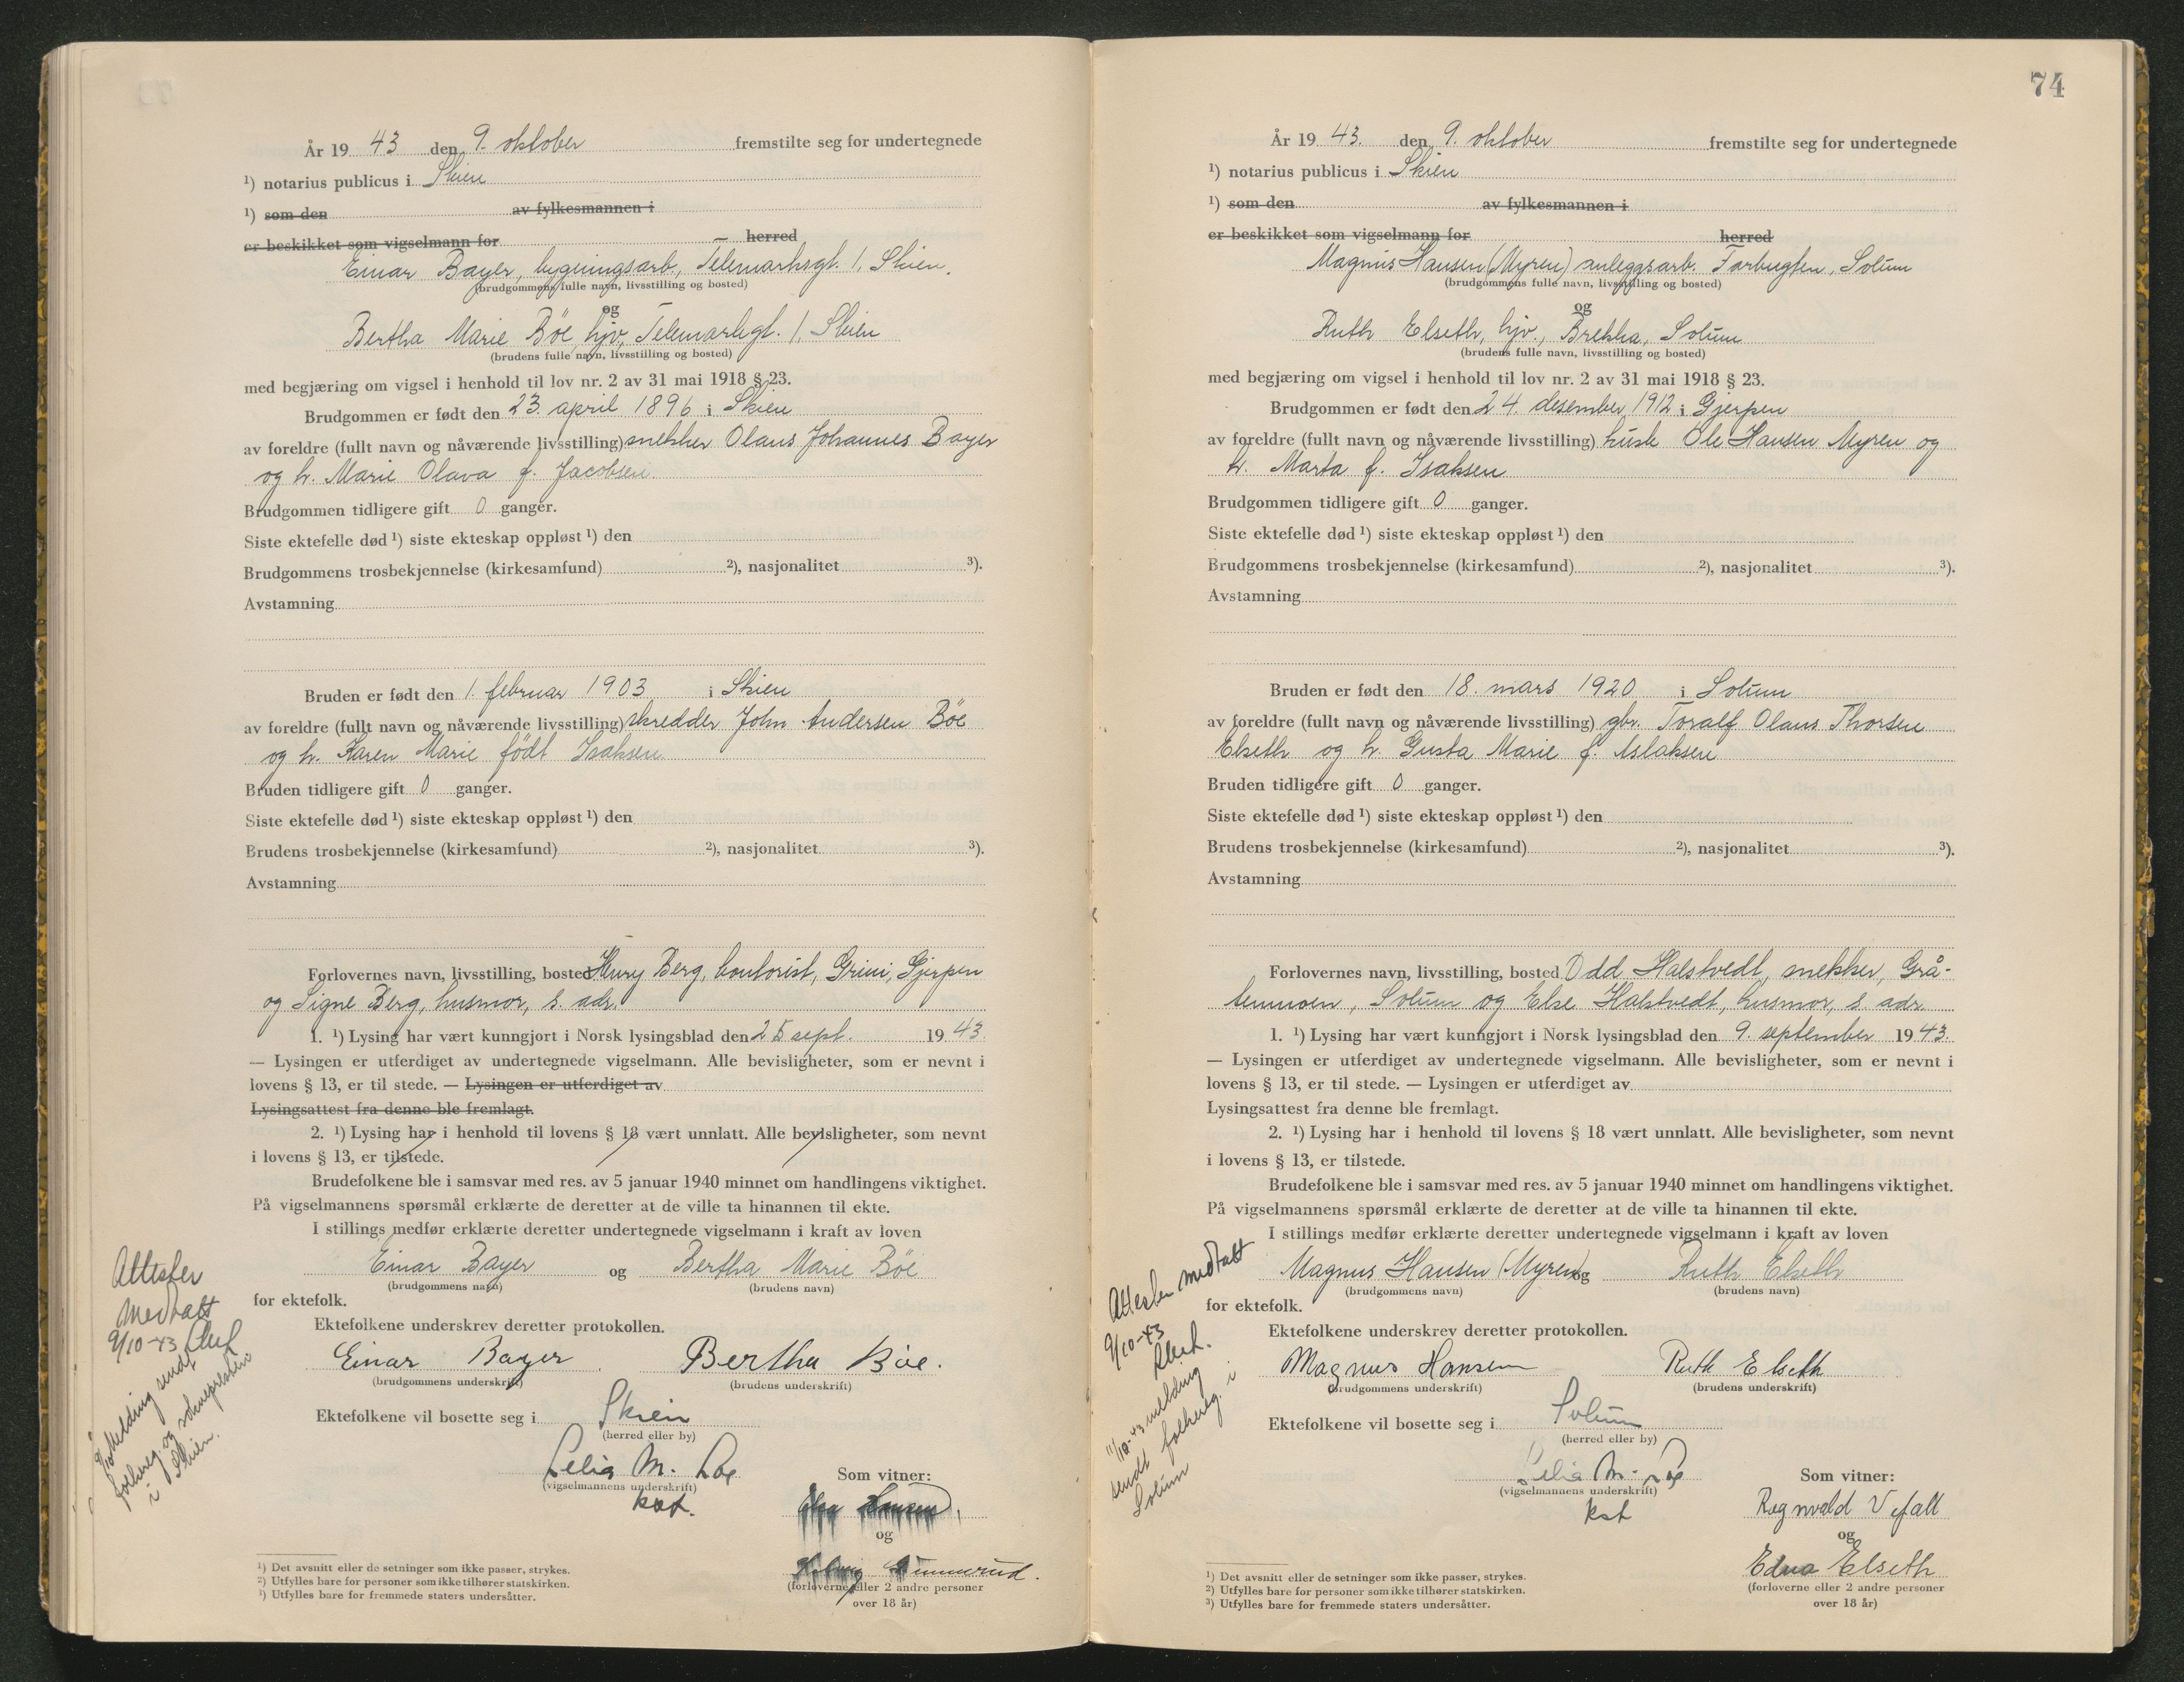 År 19 43 den 9. oktober fremstilte seg for undertegnede
¹) notarius publicus i Skien
¹) som den av fylkesmannen i
er beskikket som vigselmann for herred
Einar Bayer, bygningsarb., Telemarksgt. 1, Skien.
(brudgommens fulle navn, livsstilling og bosted)
og
Bertha Marie Böe, hjv., Telemarksgt. 1, Skien
(brudens fulle navn, livsstilling og bosted)
med begjæring om vigsel i henhold til lov nr. 2 av 31 mai 1918 § 23.
Brudgommen er født den 23. april 1896 i Skien
av foreldre (fullt navn og nåværende livsstilling) snekker Olaus Johannes Bayer
og h. Marie Olava f. Jacobsen.
Brudgommen tidligere gift 0 ganger.
Siste ektefelle død ¹) siste ekteskap oppløst ¹) den
Brudgommens trosbekjennelse (kirkesamfund) ²), nasjonalitet ³).
Avstamning
Bruden er født den 1. februar 1903 i Skien
av foreldre (fullt navn og nåværende livsstilling) skredder John Andersen Böe
og h. Karen Marie født Isaksen
Bruden tidligere gift 0 ganger.
Siste ektefelle død ¹) siste ekteskap oppløst ¹) den
Brudens trosbekjennelse (kirkesamfund) ²), nasjonalitet ³).
Avstamning
Forlovernes navn, livsstilling, bosted Henry Berg, kontorist, Grini, Gjerpen
og Signe Berg, husmor, s. adr.
1. ¹) Lysing har vært kunngjort i Norsk lysingsblad den 25 sept. 19 43.
— Lysingen er utferdiget av undertegnede vigselmann. Alle bevisligheter, som er nevnt i
lovens § 13, er til stede. — Lysingen er utferdiget av
Lysingsattest fra denne ble fremlagt.
2. ¹) Lysing har i henhold til lovens § 18 vært unnlatt. Alle bevisligheter, som nevnt
i lovens § 13, er tilstede.
Brudefolkene ble i samsvar med res. av 5 januar 1940 minnet om handlingens viktighet.
På vigselmannens spørsmål erklærte de deretter at de ville ta hinannen til ekte.
I stillings medfør erklærte deretter undertegnede vigselmann i kraft av loven
Einar Bayer og Bertha Marie Böe
(brudgommens navn) (brudens navn)
for ektefolk.
Ektefolkene underskrev deretter protokollen.
Einar Bayer. Bertha Böe.
(brudgommens underskrift) (brudens underskrift)
Ektefolkene vil bosette seg i Skien
(herred eller by)
Lelia M. Loe
(vigselmannens underskrift)
kst.
Som vitner:
og
(forloverne eller 2 andre personer
over 18 år)
Attester
medtatt
9/10-43
melding sendt
folkereg. og soknepresten
i Skien.
¹) Det avsnitt eller de setninger som ikke passer, strykes.
²) Utfylles bare for personer som ikke tilhører statskirken.
³) Utfylles bare for fremmede staters undersåtter.
74
År 19 43. den 9. oktober fremstilte seg for undertegnede
¹) notarius publicus i Skien
¹) som den av fylkesmannen i
er beskikket som vigselmann for herred
Magnus Hansen (Myren) anleggsarb. Farbugten, Solum
(brudgommens fulle navn, livsstilling og bosted)
og
Ruth Elseth, hjv., Brekka, Solum
(brudens fulle navn, livsstilling og bosted)
med begjæring om vigsel i henhold til lov nr. 2 av 31 mai 1918 § 23.
Brudgommen er født den 24. desember 1912 i Gjerpen
av foreldre (fullt navn og nåværende livsstilling) Ole Hansen Myren og
h. Marta f. Isaksen
Brudgommen tidligere gift 0 ganger.
Siste ektefelle død ¹) siste ekteskap oppløst ¹) den
Brudgommens trosbekjennelse (kirkesamfund) ²), nasjonalitet ³).
Avstamning
Bruden er født den 18. mars 1920 i Solum
av foreldre (fullt navn og nåværende livsstilling) gbr. Toralf Olaus Thorsen
Elseth og h. Gusta Marie f. Aslaksen
Bruden tidligere gift 0 ganger.
Siste ektefelle død ¹) siste ekteskap oppløst ¹) den
Brudens trosbekjennelse (kirkesamfund) ²), nasjonalitet ³).
Avstamning
Forlovernes navn, livsstilling, bosted Odd Halstvedt, snekker, Grå-
tenmoen, Solum og Else Halstvedt, husmor, s. adr.
1. ¹) Lysing har vært kunngjort i Norsk lysingsblad den 9. september 19 43.
— Lysingen er utferdiget av undertegnede vigselmann. Alle bevisligheter, som er nevnt i
lovens § 13, er til stede. — Lysingen er utferdiget av
Lysingsattest fra denne ble fremlagt.
2. ¹) Lysing har i henhold til lovens § 18 vært unnlatt. Alle bevisligheter, som nevnt
i lovens § 13, er tilstede.
Brudefolkene ble i samsvar med res. av 5 januar 1940 minnet om handlingens viktighet.
På vigselmannens spørsmål erklærte de deretter at de ville ta hinannen til ekte.
I stillings medfør erklærte deretter undertegnede vigselmann i kraft av loven
Magnus Hansen (Myren) og Ruth Elseth
(brudgommens navn) (brudens navn)
for ektefolk.
Ektefolkene underskrev deretter protokollen.
Magnus Hansen Ruth Elseth
(brudgommens underskrift) (brudens underskrift)
Ektefolkene vil bosette seg i Solum
(herred eller by)
Lelia M. Loe
(vigselmannens underskrift)
kst
Som vitner:
Ragnvald Vefall
og
Edna Elseth
(forloverne eller 2 andre personer
over 18 år)
Attester medtatt
9/10-43
11/10-43 melding
sendt folkereg. i
Solum
¹) Det avsnitt eller de setninger som ikke passer, strykes.
²) Utfylles bare for personer som ikke tilhører statskirken.
³) Utfylles bare for fremmede staters undersåtter.